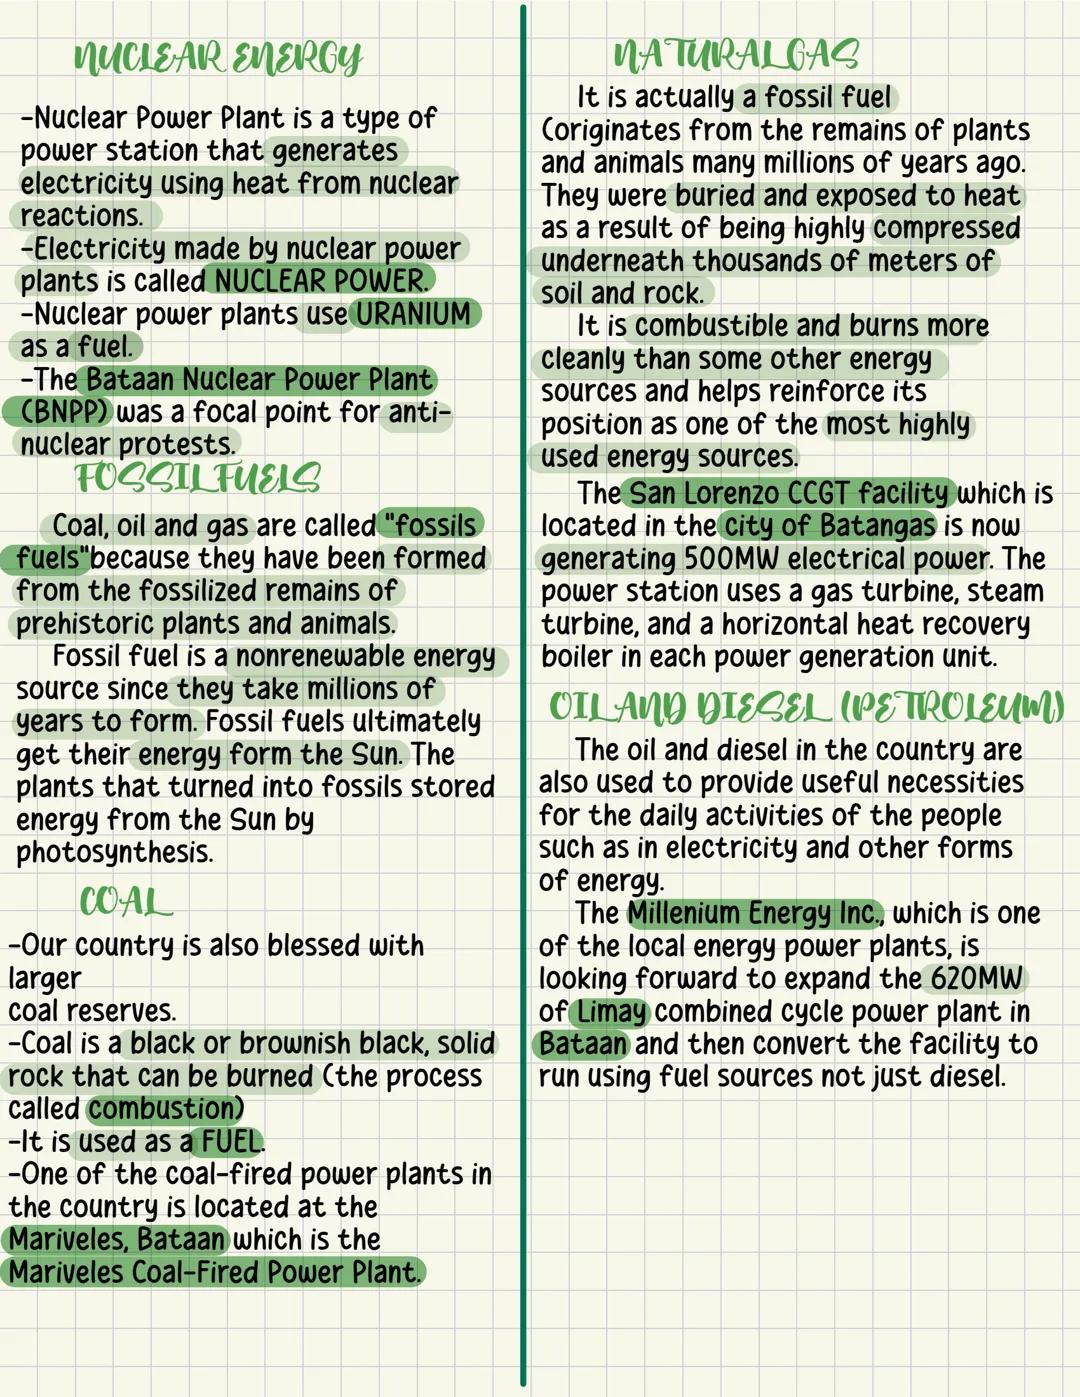 NUCLEAR ENERGY
-Nuclear Power Plant is a type of
power station that generates
electricity using heat from nuclear
reactions.
-Electricity made by nuclear power
plants is called NUCLEAR POWER.
-Nuclear power plants use URANIUM
as a fuel.
-The Bataan Nuclear Power Plant
(BNPP) was a focal point for anti-
nuclear protests.
FOSSIL FUELS
Coal, oil and gas are called "fossils
fuels"because they have been formed
from the fossilized remains of
prehistoric plants and animals.
Fossil fuel is a nonrenewable energy
source since they take millions of
years to form. Fossil fuels ultimately
get their energy form the Sun. The
plants that turned into fossils stored
energy from the Sun by
photosynthesis.
COAL
-Our country is also blessed with
larger
coal reserves.
-Coal is a black or brownish black, solid
rock that can be burned (the process
called combustion)
-It is used as a FUEL.
-One of the coal-fired power plants in
the country is located at the
Mariveles, Bataan which is the
Mariveles Coal-Fired Power Plant.
NATURAL GAS
It is actually a fossil fuel
(originates from the remains of plants
and animals many millions of years ago.
They were buried and exposed to heat
as a result of being highly compressed
underneath thousands of meters of
soil and rock.
It is combustible and burns more
cleanly than some other energy
sources and helps reinforce its
position as one of the most highly
used energy sources.
The San Lorenzo CCGT facility which is
located in the city of Batangas is now
generating 500MW electrical power. The
power station uses a gas turbine, steam
turbine, and a horizontal heat recovery
boiler in each power generation unit.
OIL AND DIESEL (PETROLEUM)
The oil and diesel in the country are
also used to provide useful necessities
for the daily activities of the people
such as in electricity and other forms
of energy.
The Millenium Energy Inc., which is one
of the local energy power plants, is
looking forward to expand the 620MW
of Limay combined cycle power plant in
Bataan and then convert the facility to
run using fuel sources not just diesel.